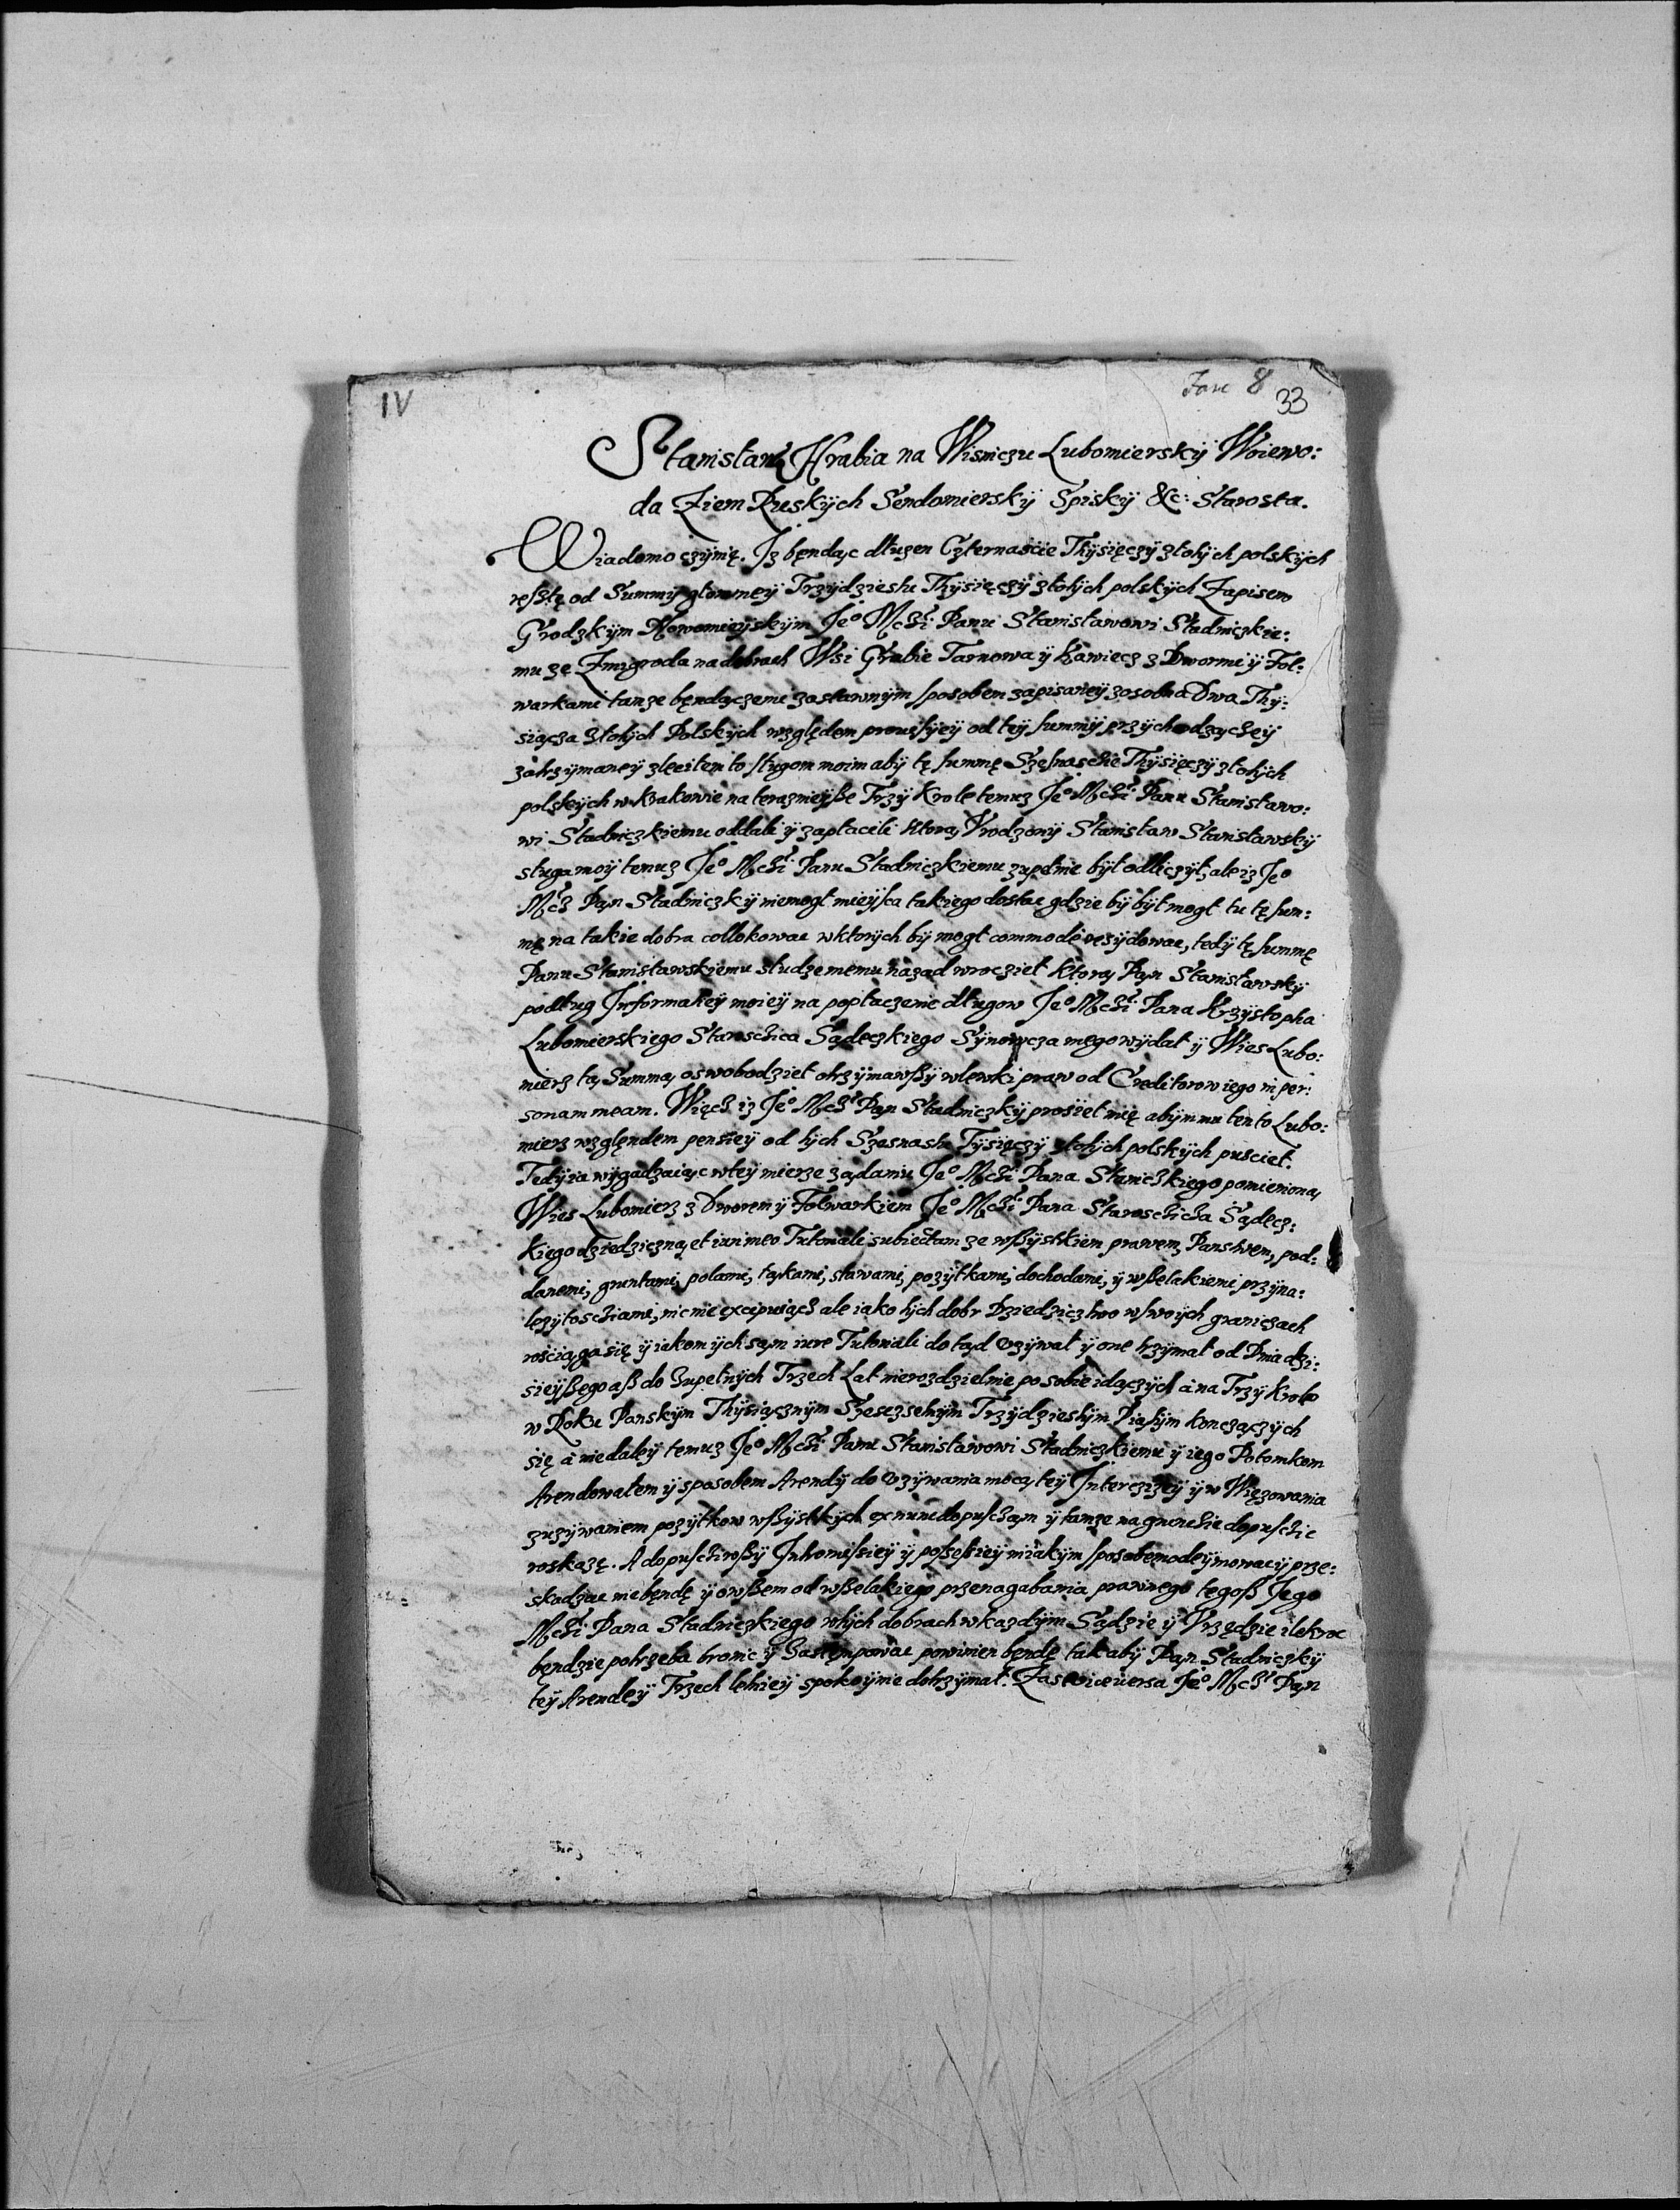 IV
Fasc 8
33
Stanisław Hrabia na Wisniczu Lubomierskÿ Woiewo:
da Ziem Ruskÿch Sendomierskÿ Spiskÿ &c: Starosta.
Wiadomo czÿnię. Jz bęndąc dłuzen Czternascie Thÿsięczÿ złotÿch polskÿch
resztę od Summÿ głownеÿ Trzÿdziestu Thÿsięczÿ złotÿch polskÿch Zapisem
Grodzkÿm Nowomieÿskÿm Je⁰ Mczi Panu Stanisławowi Stadniczkie:
mu ze Zmigroda na dobrach Wsi Grabie Tarnowa ÿ Ławiecz z Dwormi ÿ Fol:
warkami tamze bęndączemi zastawnÿm sposobem zapisaneÿ zosobna Dwa Thÿ:
siącza złotÿch Polskÿch względem prouisÿeÿ od teÿ summÿ przÿchodzączeÿ
zatrzÿmaneÿ zleciłem to sługom moim abÿ tę summę Szesnascie Thÿsięczÿ złotÿch
polskÿch w Krakowie na teraznieÿsze Trzÿ Krole temuz Je⁰ Mczi Panu Stanisławo:
wi Stadniczkiemu oddali ÿ zapłacili ktorą Vrodzonÿ Stanisław Stanisławskÿ
sługa moÿ temuz Je⁰ Mczi Panu Stadniczkiemu zupełnie bÿł odliczÿł, ale iz Je⁰
Mcz Pąn Stadniczkÿ niemogł mieÿsca takiego dostac gdzie bÿ bÿł mogł tu tę sum:
mę na takie dobra collokowac w ktorÿch bÿ mogł commodè resÿdowac, tedÿ tę summę
Panu Stanisławskiemu słudze memu nazad wroczieł ktorą Pąn Stanisławskÿ
podług Jnformatieÿ moieÿ na popłaczenie długow Je⁰ Mczi Pana Krzÿstopha
Lubomierskiego Staroscica Sądeczkiego Sÿnowcza mego wÿdał ÿ Wies Lubo:
mierz tą Summą oswobodzieł otrzÿmawszÿ wlewki praw od Creditorow iego in per:
sonam meam. Więcz iz Je⁰ Mcz Pąn Stadniczkÿ prosieł mię abÿm mu ten to Lubo:
mierz względem pensieÿ od tÿch Szesnastu Tÿsięczÿ złotÿch polskÿch puscieł.
Tedÿ ia wÿgadzaiąc w teÿ mierze ządaniu Je⁰ Mczi Pana Staniczkiego pomieniona,
Wies Lubomierz z Dworem ÿ Folwarkiem Je⁰ Mczi Pana Staroscicza Sądecz:
kiego dziedziczną, et iuri meo Tutoriali subiectam ze wszÿstkiem prawem, Panstwem, pod:
danemi, gruntami, polami, łąkami, stawami, pozÿtkami, dochodami, ÿ wszelakiemi przÿna:
lezÿtosciami, nic nie excipuiącz ale iako tÿch dobr Dziedzictwo w swoÿch graniczach
rosciąga się ÿ iakom ich sąm iure Tutoriali dotąd vzÿwał ÿ one trzÿmał od Dnia dzi:
sieÿszego asz do Zupełnÿch Trzech Lat nierozdzielnie po sobie idączÿch à na Trzÿ Krole
w Roku Panskÿm Thÿsiącznÿm Szescsetnÿm Trzÿdziestÿm Piatÿm konczączÿch
się à niedaleÿ temuz Je⁰ Mczi Panu Stanisławowi Stadniczkiemu ÿ iego Potomkom
Arendowałem ÿ sposobem Arendÿ do vzÿwania mocą teÿ Jnterczizeÿ ÿ w Więzowania
z uzÿwaniem pozÿtkow wszÿstkÿch ex nunc dopusczam ÿ tamze na gruncie dopuscic
roskazę. A dopusciwszÿ Jntromissieÿ ÿ possessieÿ niiakÿm sposobem odeÿmowac ÿ prze:
skadzac nie będę ÿ owszem od wszelakiego przenagabania prawnego tegosz Jego
Mczi Pana Stadniczkiego w tÿch dobrach w kazdÿm Sądzie ÿ Vrzędzie ilekroc
bęndzie potrzeba bronic ÿ Zastęmpowac powinien bęndę tak abÿ Pąn Stadniczkÿ
teÿ Arendeÿ Trzech letnieÿ spokoÿnie dotrzÿmał. Zas vice versa Je⁰ Mcz Pąn